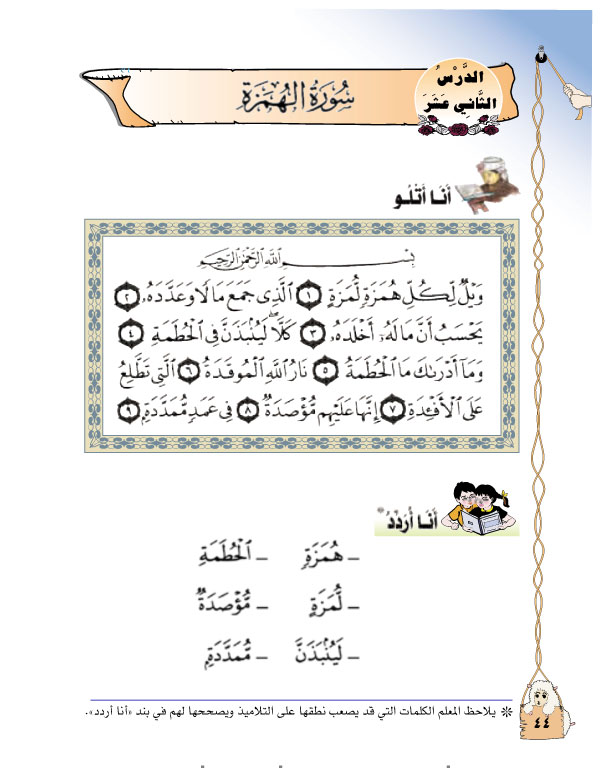 الدَّرْسُ
الثَّانِي عَشَرَ
سُورَةُ الْهُمَزَةِ
أَنَا أَتْلُو
بِسْمِ اللَّهِ الرَّحْمَٰنِ الرَّحِيمِ
وَيْلٌ لِّكُلِّ هُمَزَةٍ لُّمَزَةٍ ١ الَّذِي جَمَعَ مَالًا وَعَدَّدَهُ ٢
يَحْسَبُ أَنَّ مَالَهُ أَخْلَدَهُ ٣ كَلَّا ۖ لَيُنۢبَذَنَّ فِي الْحُطَمَةِ ٤
وَمَا أَدْرَىٰكَ مَا الْحُطَمَةُ ٥ نَارُ اللَّهِ الْمُوقَدَةُ ٦ الَّتِي تَطَّلِعُ
عَلَى الْأَفْـِٔدَةِ ٧ إِنَّهَا عَلَيْهِم مُّؤْصَدَةٌ ٨ فِي عَمَدٍ مُّمَدَّدَةٍ ٩
أَنَا أُرَدِّدُ *
– هُمَزَةٍ – الْحُطَمَةِ
– لُّمَزَةٍ – مُّؤْصَدَةٌ
– لَيُنۢبَذَنَّ – مُّمَدَّدَةٍ
* يلاحظ المعلم الكلمات التي قد يصعب نطقها على التلاميذ ويصححها لهم في بند «أنا أردد».
٤٤